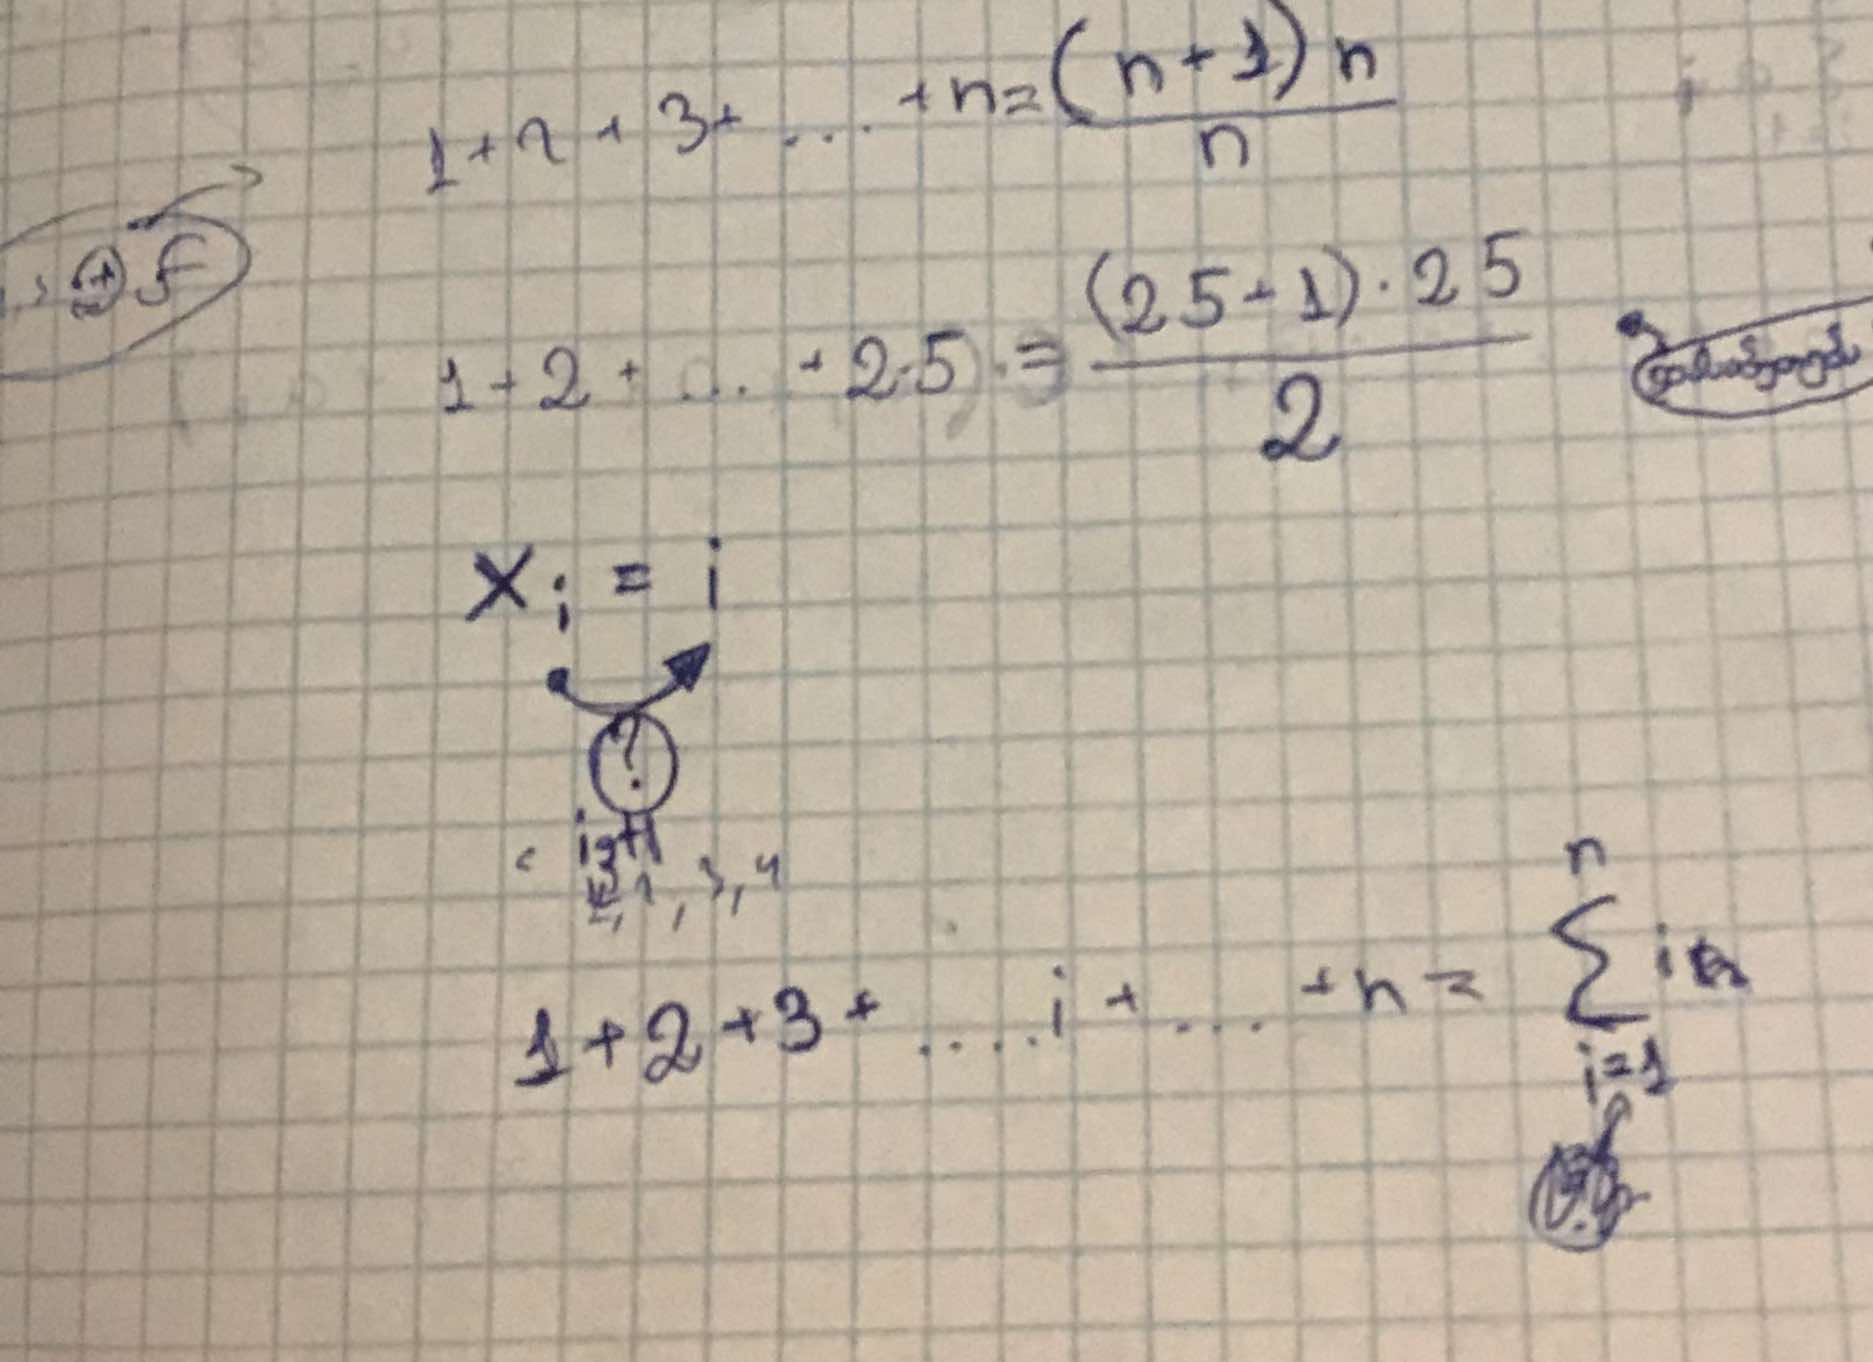 1+2+3+ ... +n= (n+1)n / n
⊕ f
1+2+ ... +25 = (25+1)·25 / 2
x_i = i
?
1, 2, 3, 4
1+2+3+ ....i+ .... +n = ∑_{i=1}^{n} i